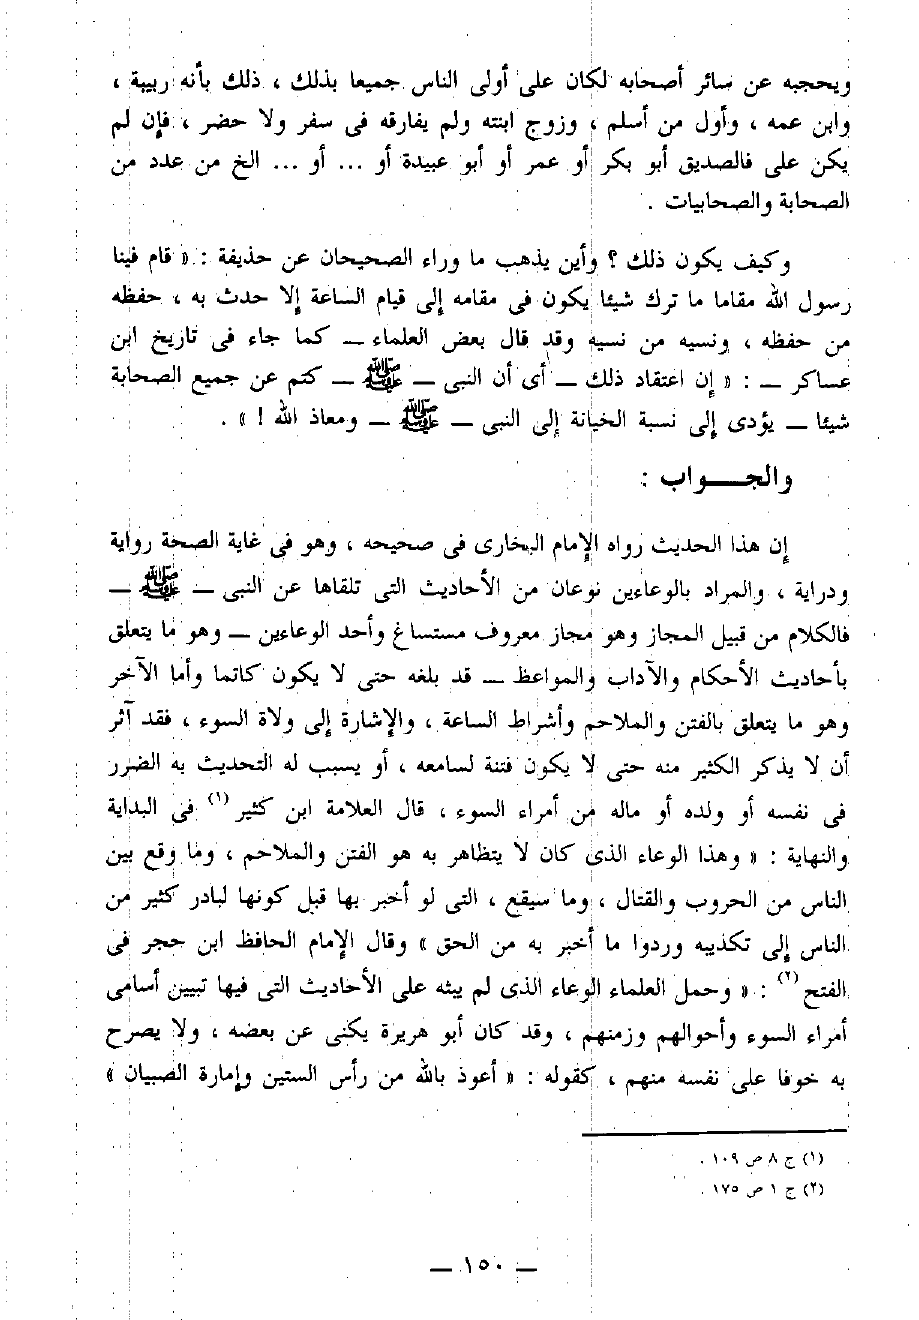 ويحجبه عن سائر أصحابه لكان على أولى الناس جميعا بذلك ، ذلك بأنه ربيبة ،
وابن عمه ، وأول من أسلم ، وزوج ابنته ولم يفارقه فى سفر ولا حضر ، فإن لم
يكن على فالصديق أبو بكر أو عمر أو أبو عبيدة أو ... أو ... الخ من عدد من
الصحابة والصحابيات .
وكيف يكون ذلك ؟ وأين يذهب ما وراء الصحيحان عن حذيفة : « قام فينا
رسول الله مقاما ما ترك شيئا يكون فى مقامه إلى قيام الساعة إلا حدث به ، حفظه
من حفظه ، ونسيه من نسيه وقد قال بعض العلماء — كما جاء فى تاريخ ابن
عساكر — : « إن اعتقاد ذلك — أى أن النبى — ﷺ — كتم عن جميع الصحابة
شيئا — يؤدى إلى نسبة الخيانة إلى النبى — ﷺ — ومعاذ الله ! » .
والجـــواب :
إن هذا الحديث رواه الإمام البخارى فى صحيحه ، وهو فى غاية الصحة رواية
ودراية ، والمراد بالوعاءين نوعان من الأحاديث التى تلقاها عن النبى — ﷺ —
فالكلام من قبيل المجاز وهو مجاز معروف مستساغ وأحد الوعاءين — وهو ما يتعلق
بأحاديث الأحكام والآداب والمواعظ — قد بلغه حتى لا يكون كاتما وأما الآخر
وهو ما يتعلق بالفتن والملاحم وأشراط الساعة ، والإشارة إلى ولاة السوء ، فقد آثر
أن لا يذكر الكثير منه حتى لا يكون فتنة لسامعه ، أو يسبب له التحديث به الضرر
فى نفسه أو ولده أو ماله من أمراء السوء ، قال العلامة ابن كثير (١) فى البداية
والنهاية : « وهذا الوعاء الذى كان لا يتظاهر به هو الفتن والملاحم ، وما وقع بين
الناس من الحروب والقتال ، وما سيقع ، التى لو أخبر بها قبل كونها لبادر كثير من
الناس إلى تكذيبه وردوا ما أخبر به من الحق » وقال الإمام الحافظ ابن حجر فى
الفتح (٢) : « وحمل العلماء الوعاء الذى لم يبثه على الأحاديث التى فيها تبيين أسامى
أمراء السوء وأحوالهم وزمنهم ، وقد كان أبو هريرة يكنى عن بعضه ، ولا يصرح
به خوفا على نفسه منهم ، كقوله : « أعوذ بالله من رأس الستين وإمارة الصبيان »
(١) ج ٨ ص ١٠٩ .
(٢) ج ١ ص ١٧٥ .
— ١٥٠ —